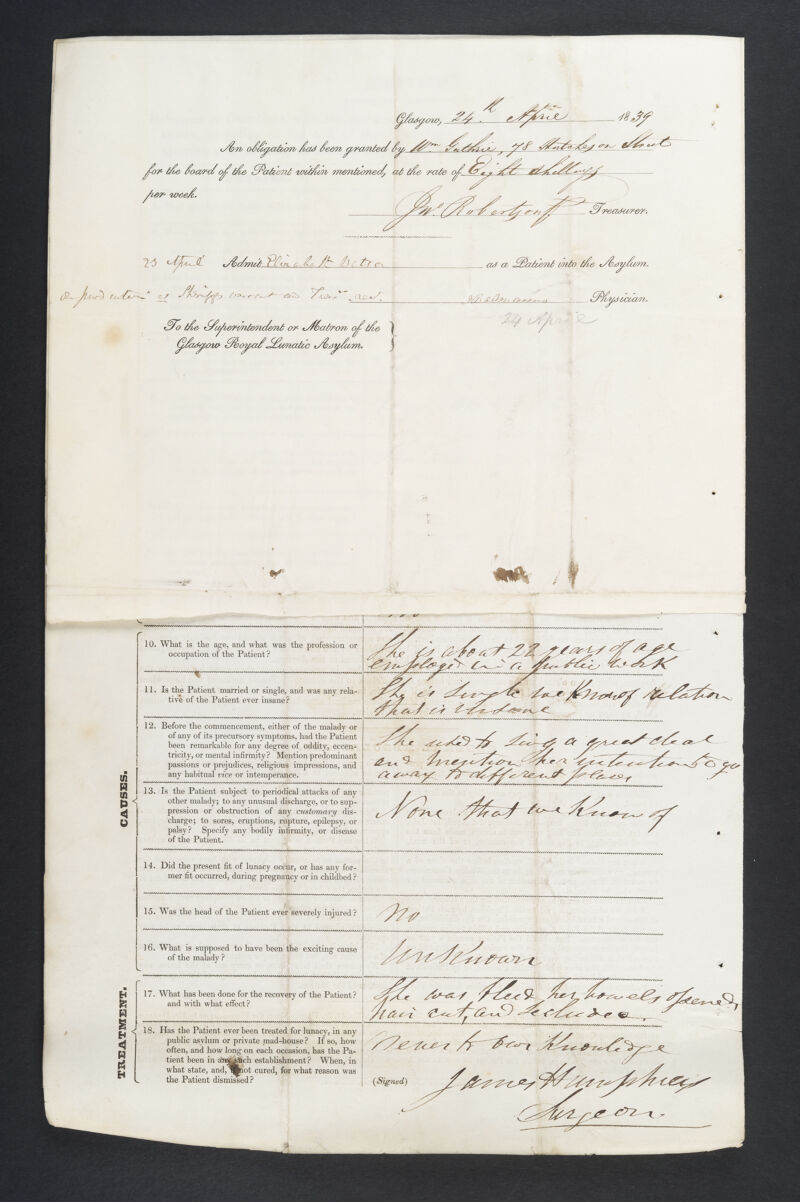 Glasgow, 24th April 1839
An obligation has been granted by Wm Guthrie, 78 Hutcheson Street
for the board of the Patient within mentioned, at the rate of Eight shillings
per week.
Jno Robertson Treasurer.
23 April Admit Elizabeth as a Patient into the Asylum.
on production of Sheriffs warrant and Physician.
24 April
To the Superintendent or Matron of the
Glasgow Royal Lunatic Asylum.
no
CAUSES.
10. What is the age, and what was the profession or
occupation of the Patient?
She is about 22 years of age
employed in a public work
11. Is the Patient married or single, and was any rela-
tive of the Patient ever insane?
She is single we know of relation
that is insane
12. Before the commencement, either of the malady or
of any of its precursory symptoms, had the Patient
been remarkable for any degree of oddity, eccen-
tricity, or mental infirmity? Mention predominant
passions or prejudices, religious impressions, and
any habitual vice or intemperance.
She used to sing a great deal
and mention her intention to go
away to different places
13. Is the Patient subject to periodical attacks of any
other malady; to any unusual discharge, or to sup-
pression or obstruction of any customary dis-
charge; to sores, eruptions, rupture, epilepsy, or
palsy? Specify any bodily infirmity, or disease
of the Patient.
None that we know of
14. Did the present fit of lunacy occur, or has any for-
mer fit occurred, during pregnancy or in childbed?
15. Was the head of the Patient ever severely injured?
no
16. What is supposed to have been the exciting cause
of the malady?
Unknown
TREATMENT.
17. What has been done for the recovery of the Patient?
and with what effect?
She was bled her bowels opened,
hair cut, and secluded.
18. Has the Patient ever been treated for lunacy, in any
public asylum or private mad-house? If so, how
often, and how long on each occasion, has the Pa-
tient been in any such establishment? When, in
what state, and, if not cured, for what reason was
the Patient dismissed?
Never to our Knowledge
(Signed) James Humphreys
Surgeon.